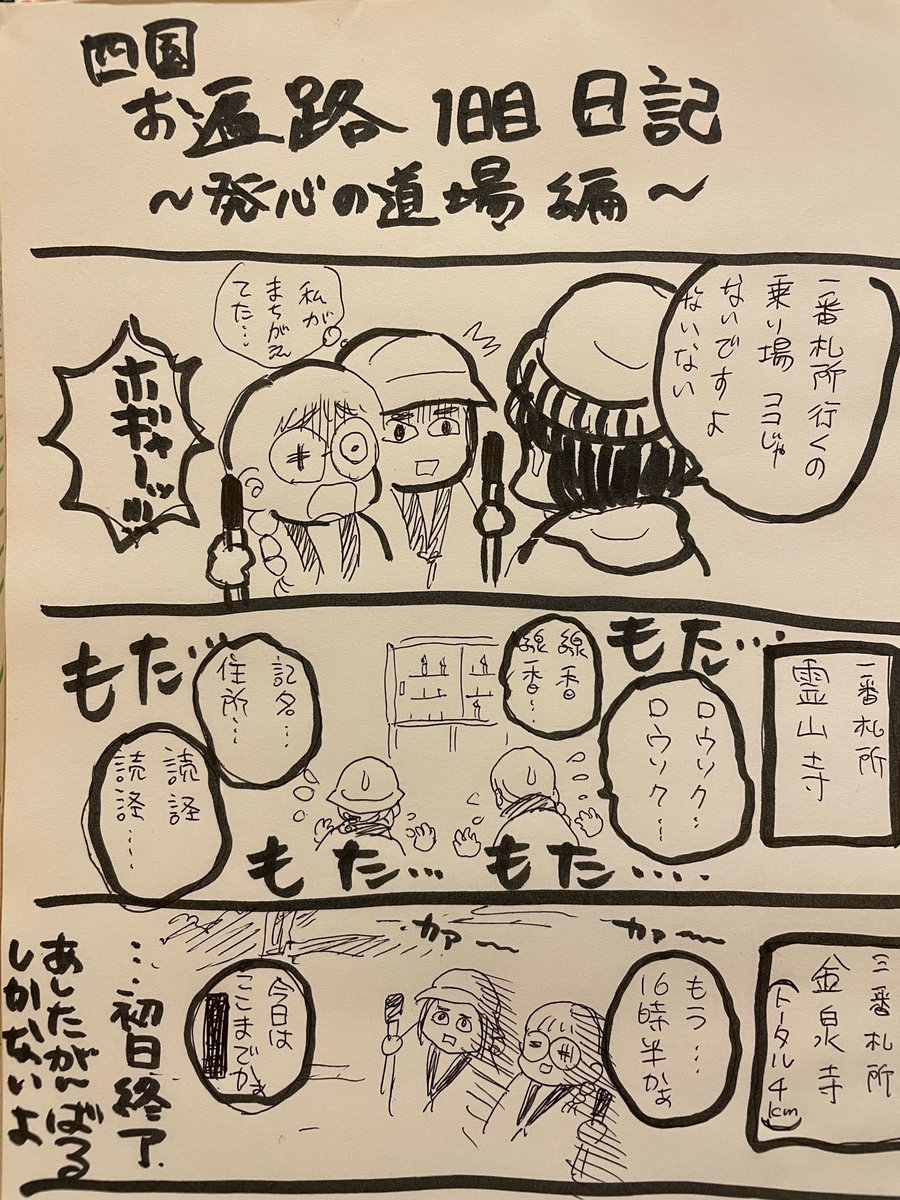 四国
お遍路 1日目 日記
～発心の道場 編～
一番札所行くの
乗り場 ココじゃ
ないですよ
ないない
私が
まちがえ
てた…
ホギャーッ!!!
一番札所
霊山寺
もた…
ロウソク…
ロウソク…
線香
線香…
記名…
住所…
もた…
読経
読経…
もた…
もた…
三番札所
金泉寺
(トータル4km)
カァ～
カァ～
もう…
16時半かぁ
今日は
ここまでかぁ
…初日終了
あしたがんばる
しかないよ